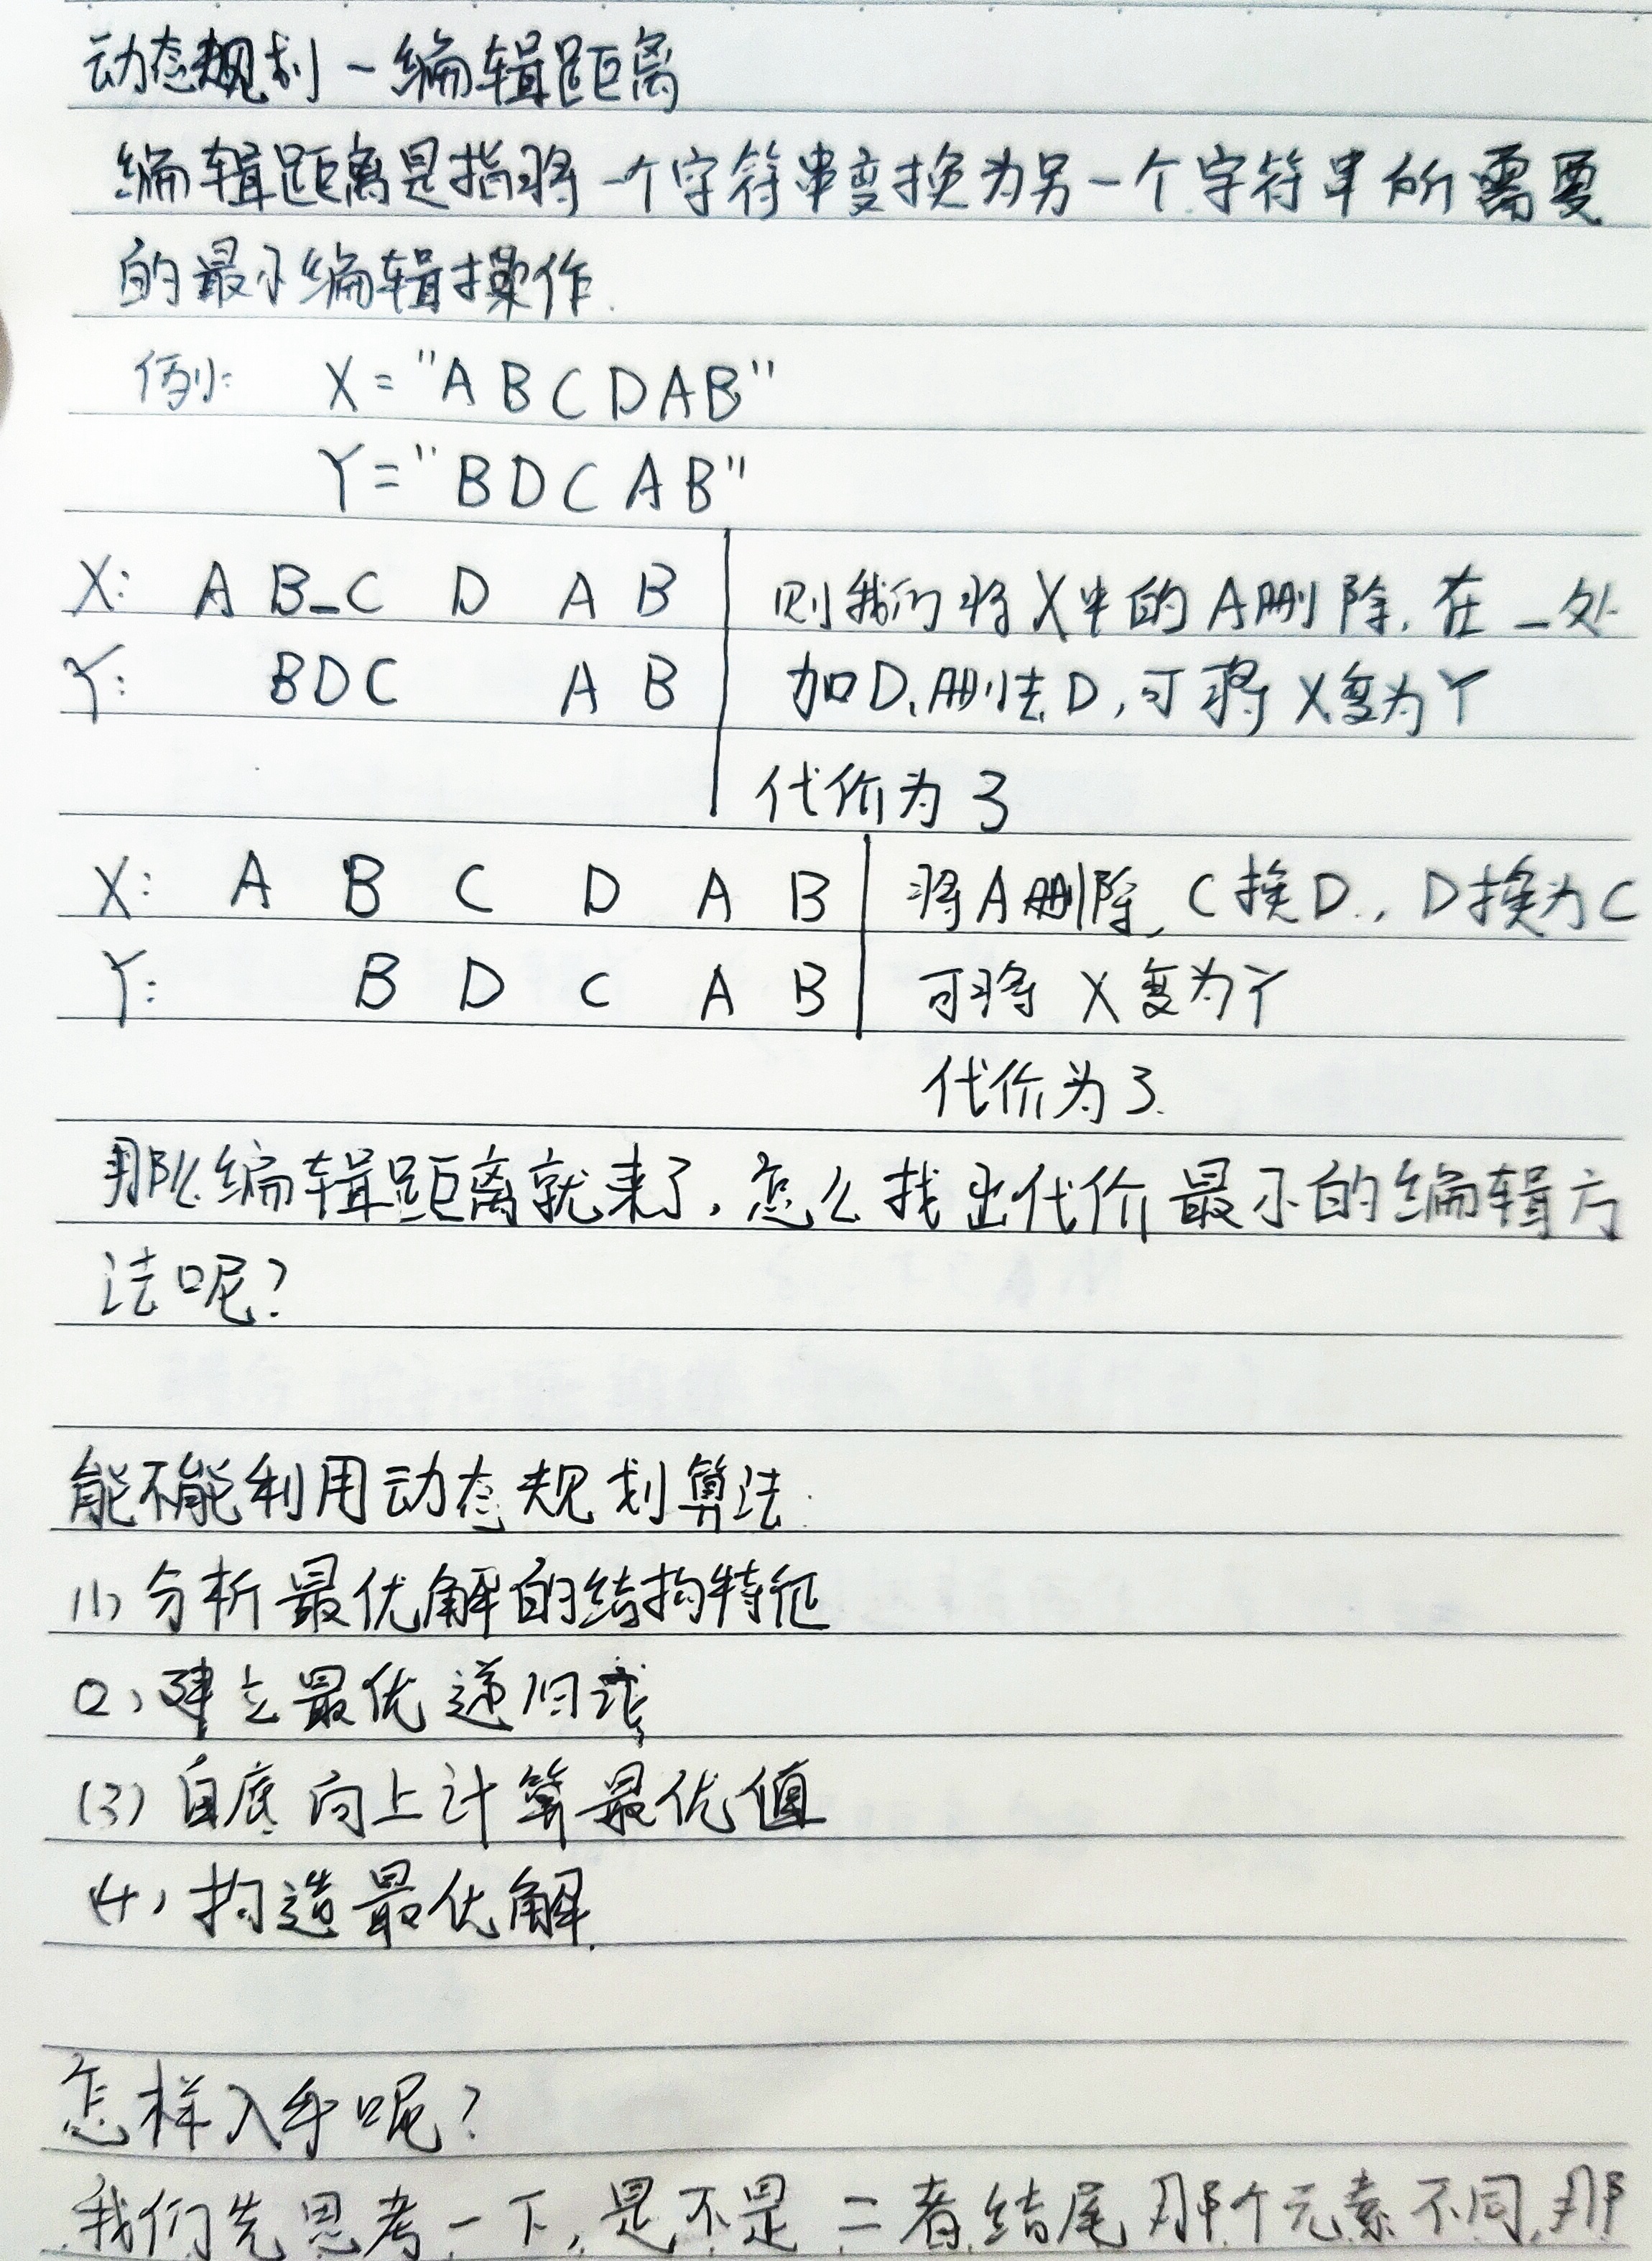 动态规划-编辑距离
编辑距离是指将一个字符串变换为另一个字符串所需要
的最小编辑操作.
例: X="ABCDAB"
Y="BDCAB"
X: A B_C D A B 则我们将X中的A删除.在_处
Y: BDC A B 加D、删去D,可将X变为Y
代价为3
X: A B C D A B 将A删除,C换D.,D换为C
Y: B D C A B 可将X变为Y
代价为3.
那么编辑距离就来了,怎么找出代价最小的编辑方
法呢?
能不能利用动态规划算法.
(1)分析最优解的结构特征
(2)建立最优递归式
(3)自底向上计算最优值
(4)构造最优解.
怎样入手呢?
我们先思考一下,是不是二者结尾那个元素不同,那